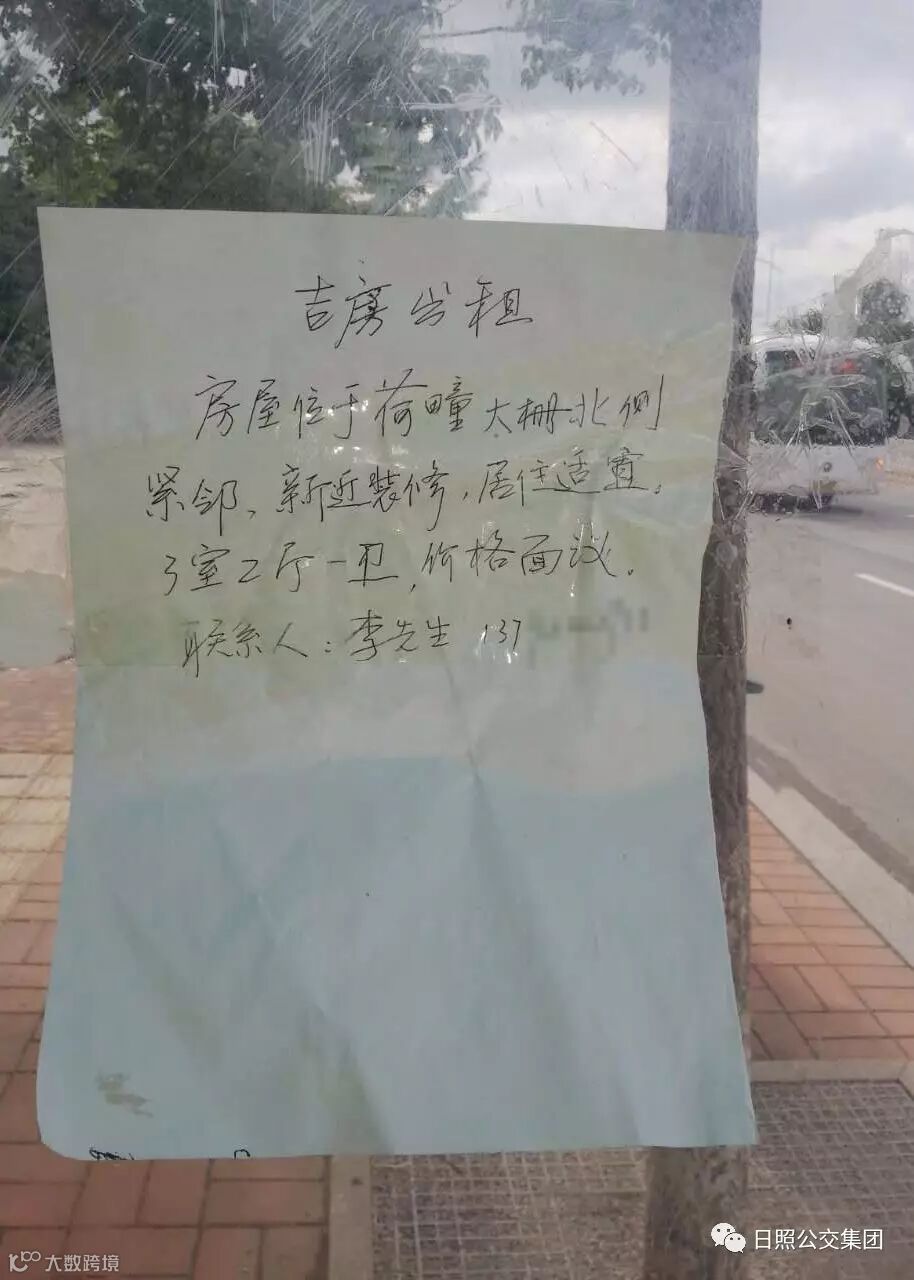 吉房出租
房屋位于荷疃大棚北侧
紧邻、新近装修,居住适宜。
3室2厅一卫,价格面议。
联系人:李先生 137
日照公交集团
大数跨境